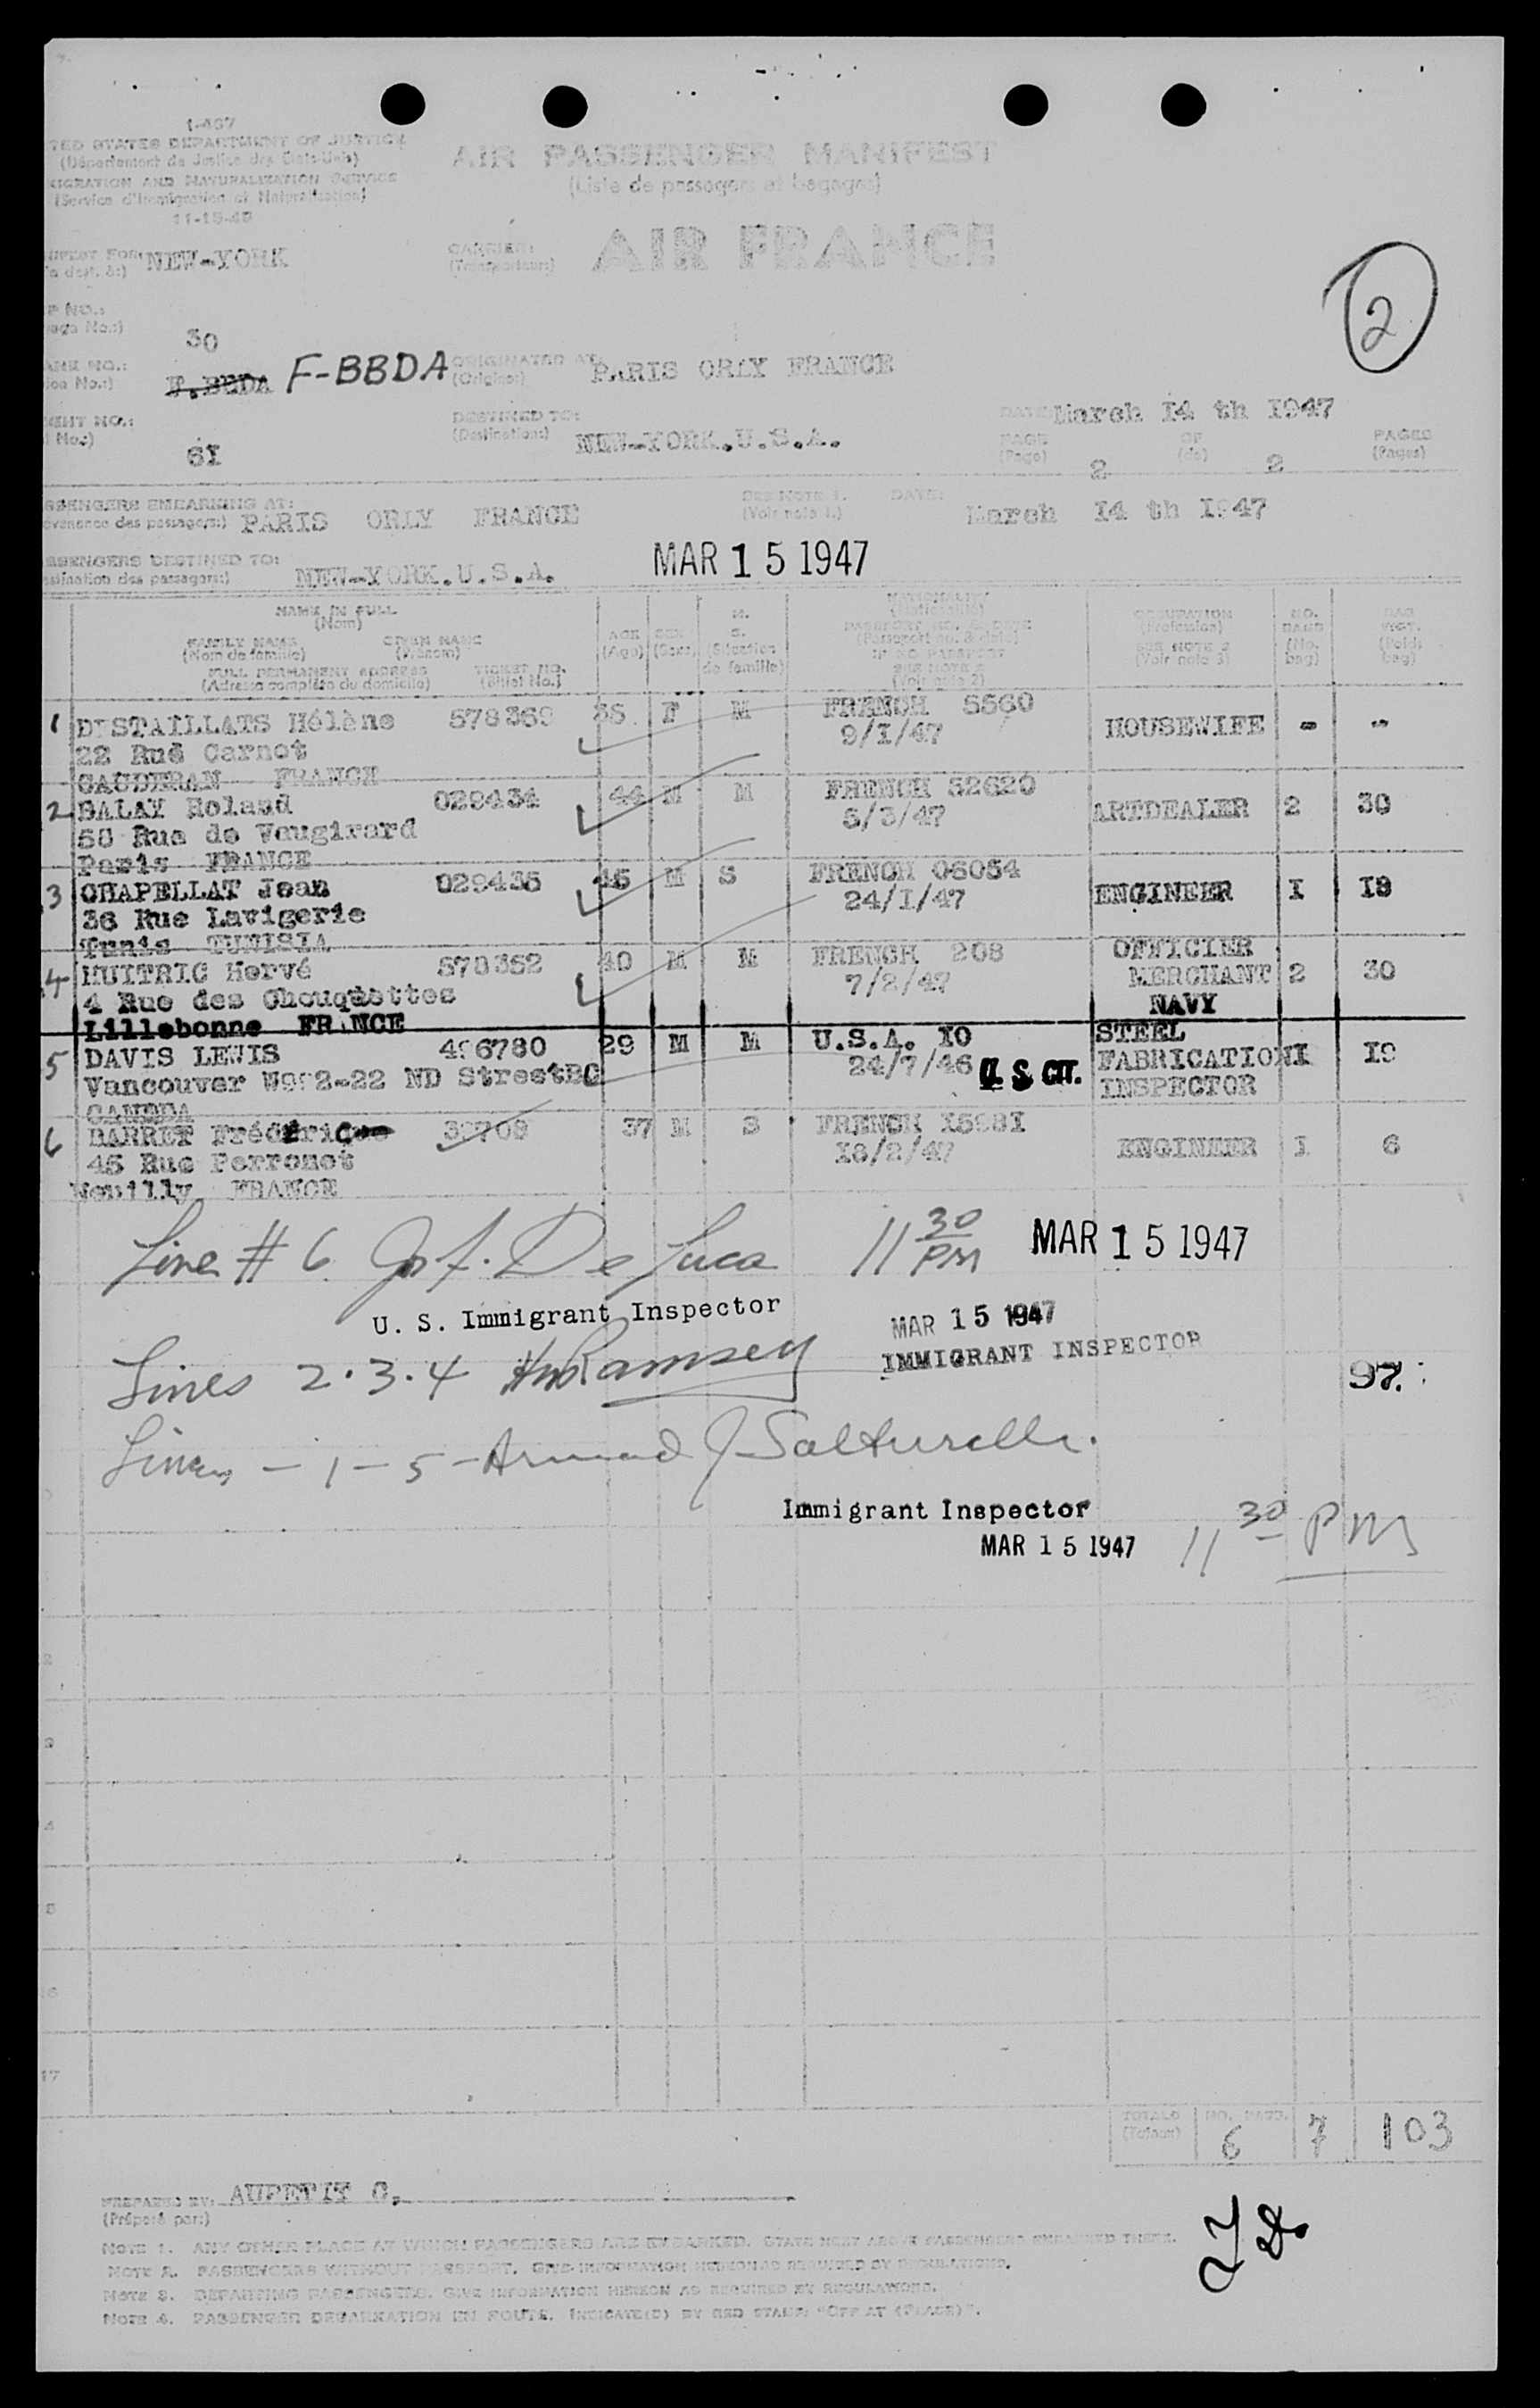 1-467
TED STATES DEPARTMENT OF JUSTICE
(Département de Justice des Etats-Unis)
IGRATION AND NATURALIZATION SERVICE
(Service d'Immigration et Naturalisation)
11-15-45
AIR PASSENGER MANIFEST
(Liste de passagers et bagages)
NIFEST FOR: NEW-YORK
CARRIER: AIR FRANCE
(Transporteur:)
2
P NO.:
30
F.BBDA F-BBDA
ORIGINATED AT PARIS ORLY FRANCE
(Origine:)
DATE March 14 th 1947
GHT NO.:
61
DESTINED TO:
(Destination:) NEW-YORK.U.S.A.
PAGE 2 OF 2 PAGES
(Page) (de) (Pages)
SSENGERS EMBARKING AT:
PARIS ORLY FRANCE
SEE NOTE 1. DATE:
(Voir note 1.) March 14 th 1947
SSENGERS DESTINED TO:
NEW-YORK.U.S.A.
MAR 15 1947
NAME IN FULL
(Nom)
FAMILY NAME GIVEN NAME
(Nom de famille) (Prénom)
FULL PERMANENT ADDRESS TICKET NO.
(Adresse complète du domicile) (Billet No.)
AGE
(Age)
SEX
(Sexe)
M.
S.
(Situation
de famille)
NATIONALITY
(Nationalité)
PASSPORT NO. & DATE
(Passeport no. & date)
IF NO PASSPORT
SEE NOTE 2
(Voir note 2)
OCCUPATION
(Profession)
SEE NOTE 3
(Voir note 3)
NO.
BAGS
(No.
bag)
BAG
WGT.
(Poids
bag)
1 DESTAILLATS Hélène 578369 35 F M FRENCH 5560 HOUSEWIFE - -
22 Rue Carnot 9/I/47
CAUDERAN FRANCE
2 BALAY Roland 029434 44 M M FRENCH 52620 ARTDEALER 2 30
58 Rue de Vaugirard 5/3/47
Paris FRANCE
3 CHAPELLAT Jean 029435 45 M S FRENCH 06054 ENGINEER I 18
36 Rue Lavigerie 24/I/47
Tunis TUNISIA
4 HUITRIC Hervé 578352 40 M M FRENCH 208 OFFICIER MERCHANT NAVY 2 30
4 Rue des Chouquettes 7/2/47
Lillebonne FRANCE
5 DAVIS LEWIS 496780 29 M M U.S.A. IO STEEL FABRICATION INSPECTOR I 19
Vancouver W992-22 ND StreetBC 24/7/46 U. S. CIT.
CANADA
6 BARRET Frédéric 37 M S FRENCH 15981 ENGINEER I 6
45 Rue Perronet 18/2/47
Neuilly FRANCE
Line # 6 Jos. f. De Luca 11 30 PM MAR 15 1947
U. S. Immigrant Inspector
MAR 15 1947
Lines 2.3.4 Ramsey IMMIGRANT INSPECTOR
97.
Lines - 1 - 5 - Armand J Salturelli.
Immigrant Inspector
MAR 15 1947 11 30 PM
TOTALS NO. PASS. 6 7 103
PREPARED BY: AUPETIT C.
(Préparé par:)
NOTE 1. ANY OTHER PLACE AT WHICH PASSENGERS ARE EMBARKED. STATE NEXT ABOVE PASSENGERS EMBARKED THERE.
NOTE 2. PASSENGERS WITHOUT PASSPORT. GIVE INFORMATION HEREON AS REQUIRED BY REGULATIONS.
NOTE 3. DEPARTING PASSENGERS. GIVE INFORMATION HEREON AS REQUIRED BY REGULATIONS.
NOTE 4. PASSENGER DEBARKATION EN ROUTE. INDICATE(D) BY RED STAMP "OFF AT (PLACE)".